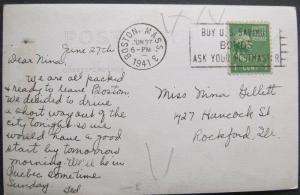 POST CARD
June 27th
Dear Nina,
We are all packed
& ready to leave Boston
We decided to drive
a short way out of the
city tonight so we
would have a good
start by tomorrow
morning. We'll be in
Quebec sometime
Sunday.
Ted
BOSTON, MASS. 3
JUN 27
6-PM
1941
BUY U.S. SAVINGS
BONDS
ASK YOUR POSTMASTER
1 CENT
Miss Nina Gellett
927 Hancock St
Rockford, Ill